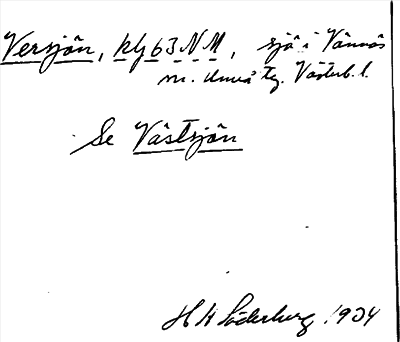 Versjön, kly63NM, sjö i Vännäs
m. Umeå tg. Västerb. l.
Se Västsjön
H W Söderberg 1934